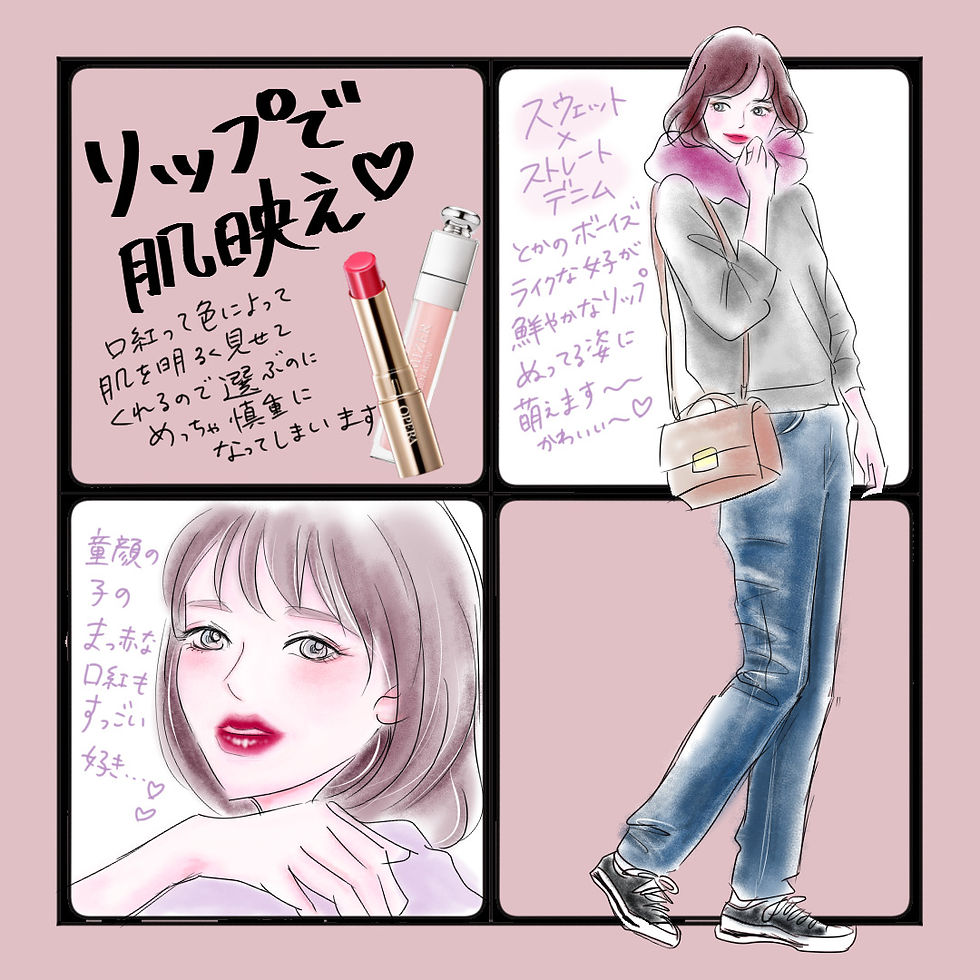 リップで
肌映え♡
口紅って色によって
肌を明るく見せて
くれるので選ぶのに
めっちゃ慎重に
なってしまいます
OPERA
スウェット
×
ストレート
デニム
とかのボーイズ
ライクな女子が
鮮やかなリップ
ぬってる姿に
萌えます〜〜
かわいい〜♡
童顔の
子の
まっ赤な
口紅も
すっごい
好き…♡
♡